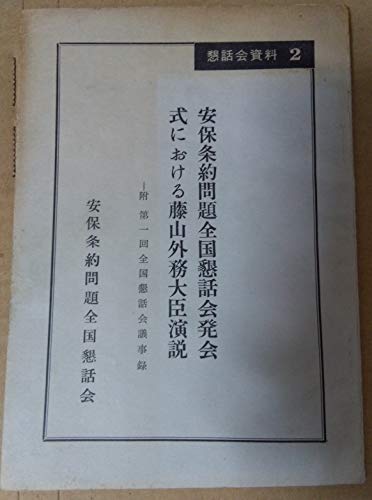 懇話会資料 2
安保条約問題全国懇話会発会
式における藤山外務大臣演説
―附 第一回全国懇話会議事録
安保条約問題全国懇話会